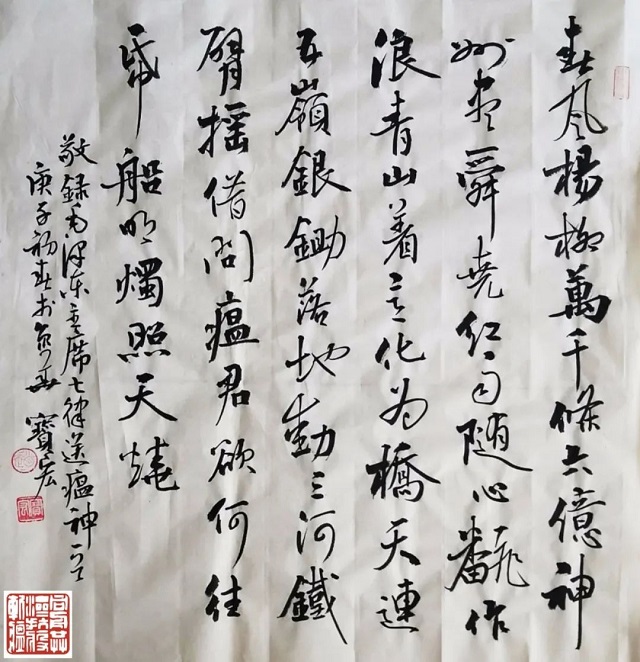 春风楊柳萬千條六億神
州盡舜堯红雨随心翻作
浪青山着意化为橋天連
五嶺銀鋤落地動三河鐵
臂摇借问瘟君欲何往
纸船明燭照天燒
敬録毛泽东主席七律送瘟神一首
庚子初春於
寶宏